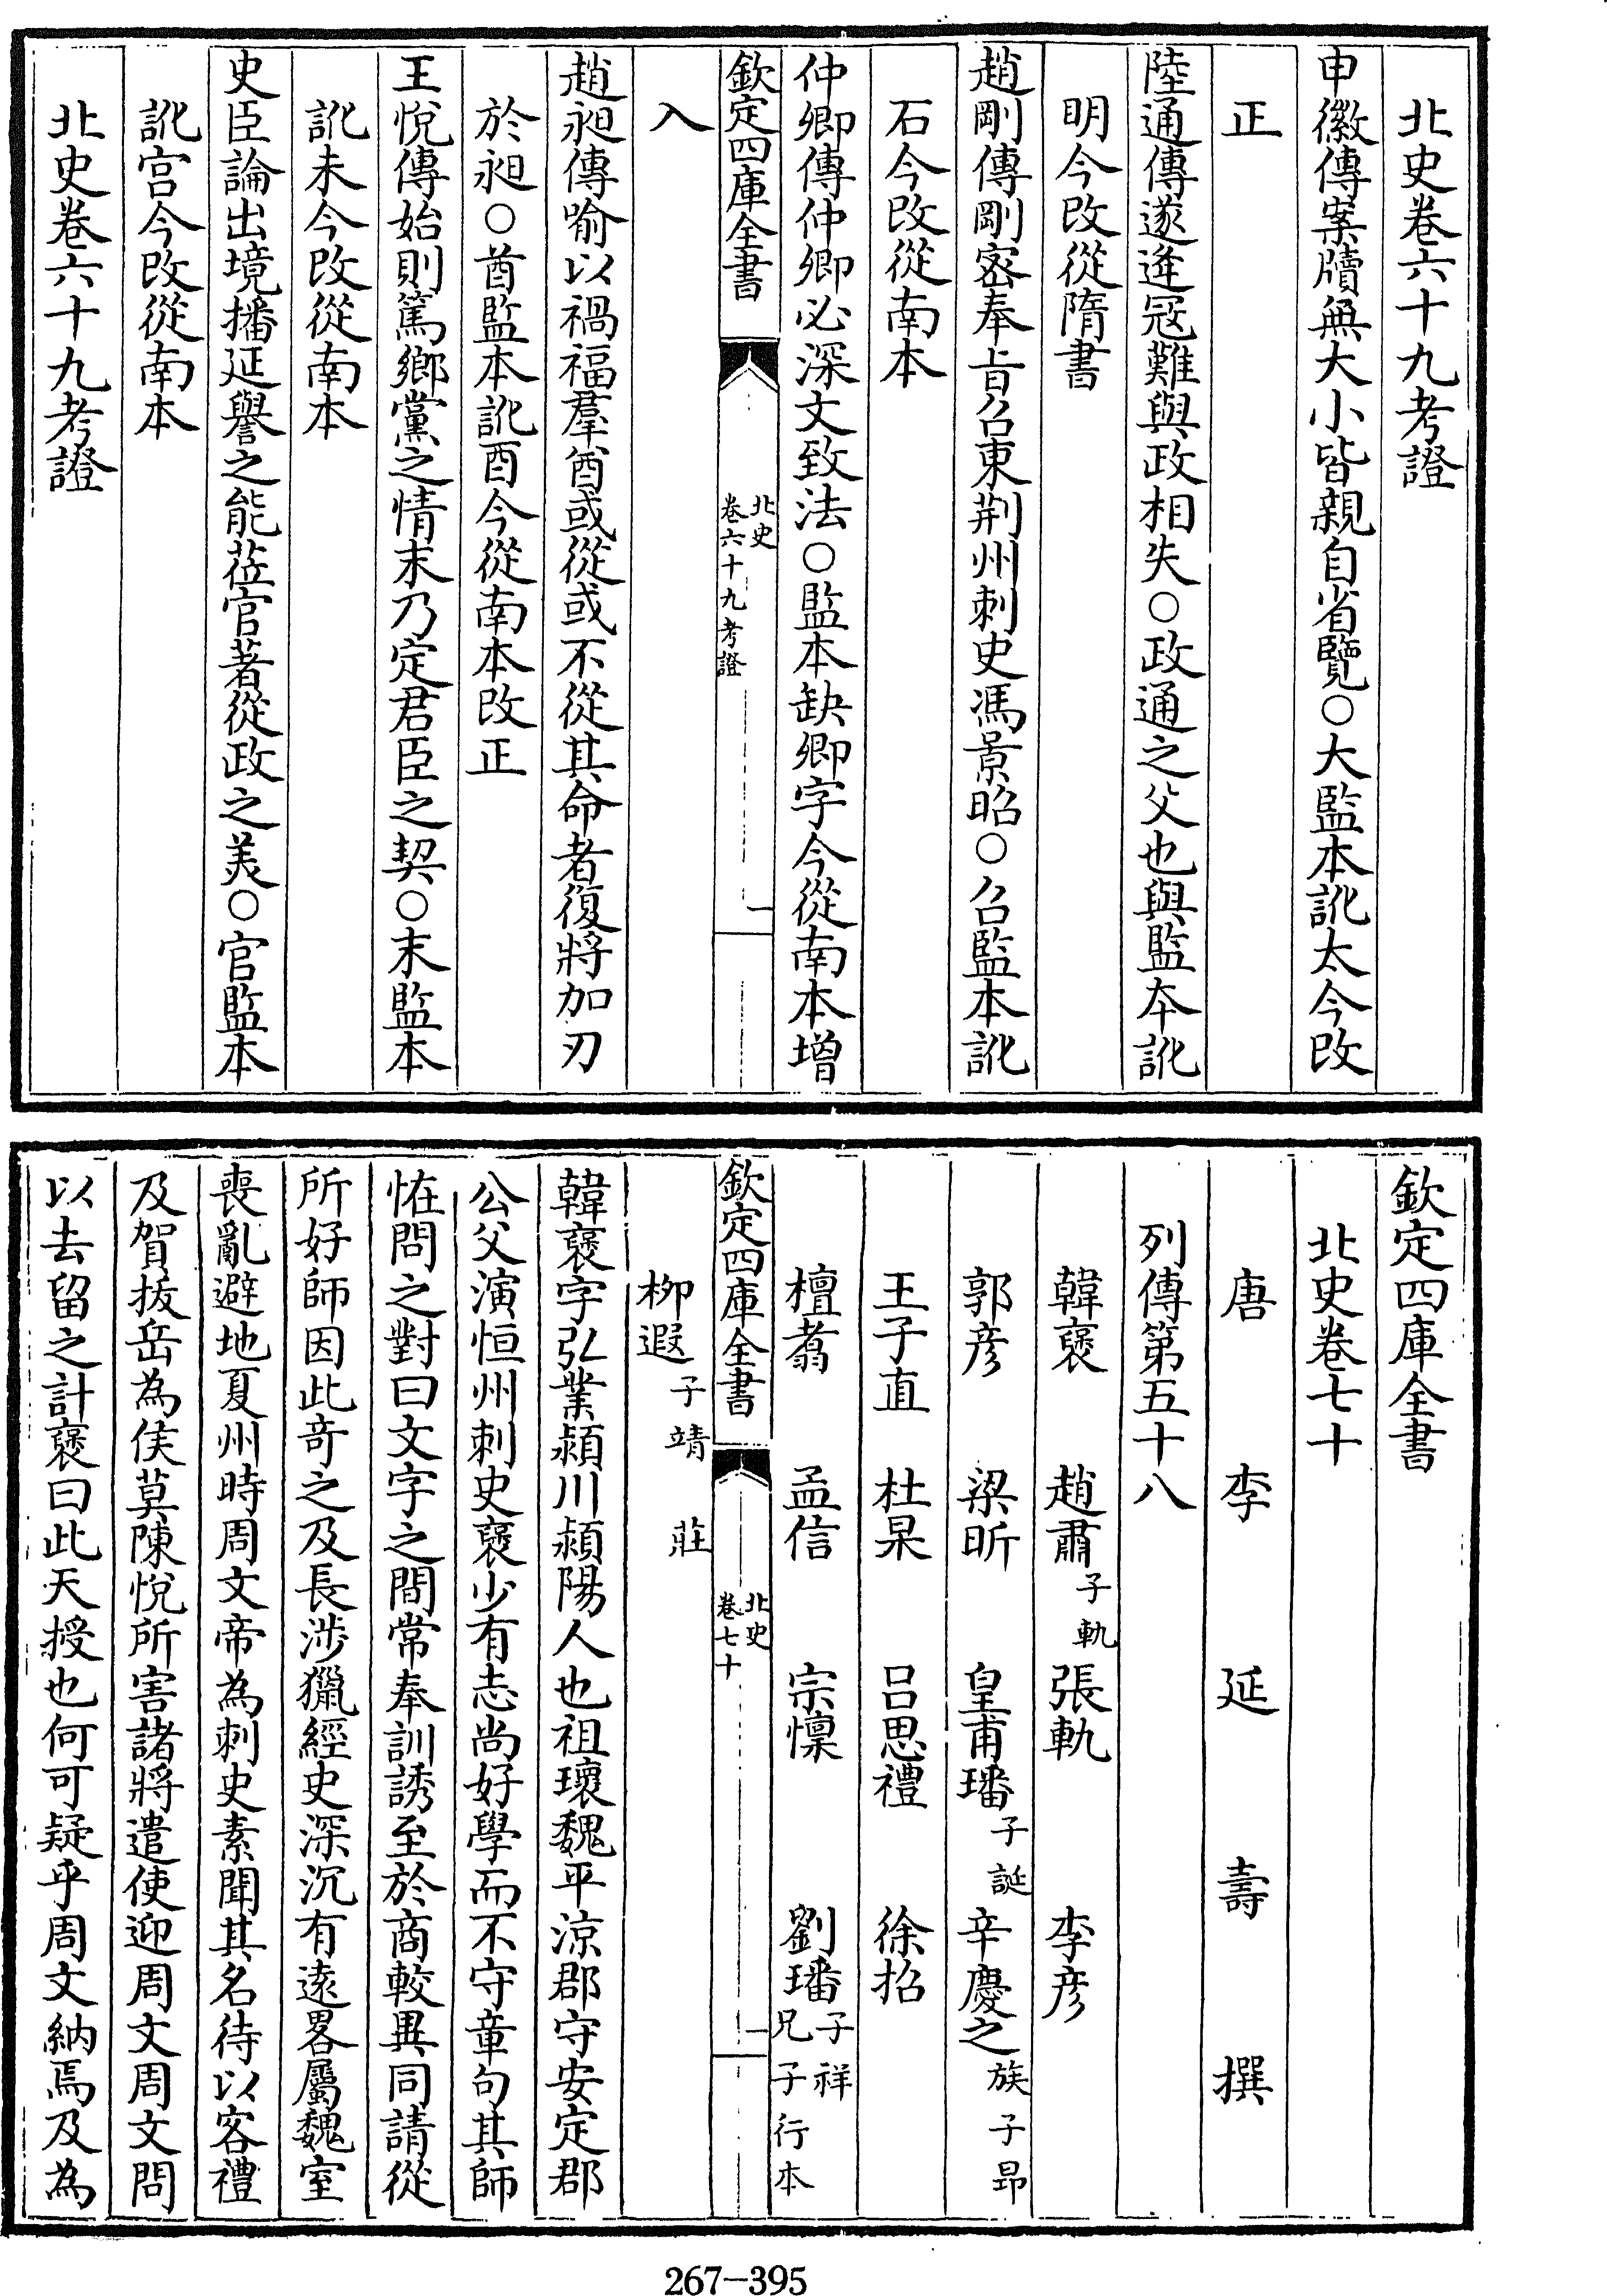 北史卷六十九考證
申徽傳案牘無大小皆親自省覽○大監本訛太今改
正
陸通傳遂逢冦難與政相失○政通之父也與監本訛
明今改從隋書
趙剛傳剛密奉旨召東荆州刺史馮景昭○召監本訛
石今改從南本
仲卿傳仲卿必深文致法○監本缺卿字今從南本增
欽定四庫全書
北史
卷六十九考證
一
入
趙昶傳喻以禍福羣酋或從或不從其命者復將加刃
於昶○酋監本訛酉今從南本改正
王悅傳始則篤鄉黨之情末乃定君臣之契○末監本
訛未今改從南本
史臣論出境播延譽之能莅官著從政之美○官監本
訛宫今改從南本
北史卷六十九考證
欽定四庫全書
北史卷七十
唐 李 延 壽 撰
列傳第五十八
韓褒 趙肅 子軌 張軌 李彦
郭彦 梁昕 皇甫璠 子誕 辛慶之 族子昻
王子直 杜杲 吕思禮 徐招
檀翥 孟信 宗懍 劉璠 子祥 兄子行本
欽定四庫全書
北史
卷七十
一
柳遐 子靖 莊
韓褒字弘業潁川潁陽人也祖瓌魏平凉郡守安定郡
公父演恒州刺史褒少有志尚好學而不守章句其師
怪問之對曰文字之間常奉訓誘至於商較異同請從
所好師因此奇之及長涉獵經史深沉有逺畧屬魏室
喪亂避地夏州時周文帝為刺史素聞其名待以客禮
及賀拔岳為侯莫陳悅所害諸將遣使迎周文周文問
以去留之計褒曰此天授也何可疑乎周文納焉及為
267-395